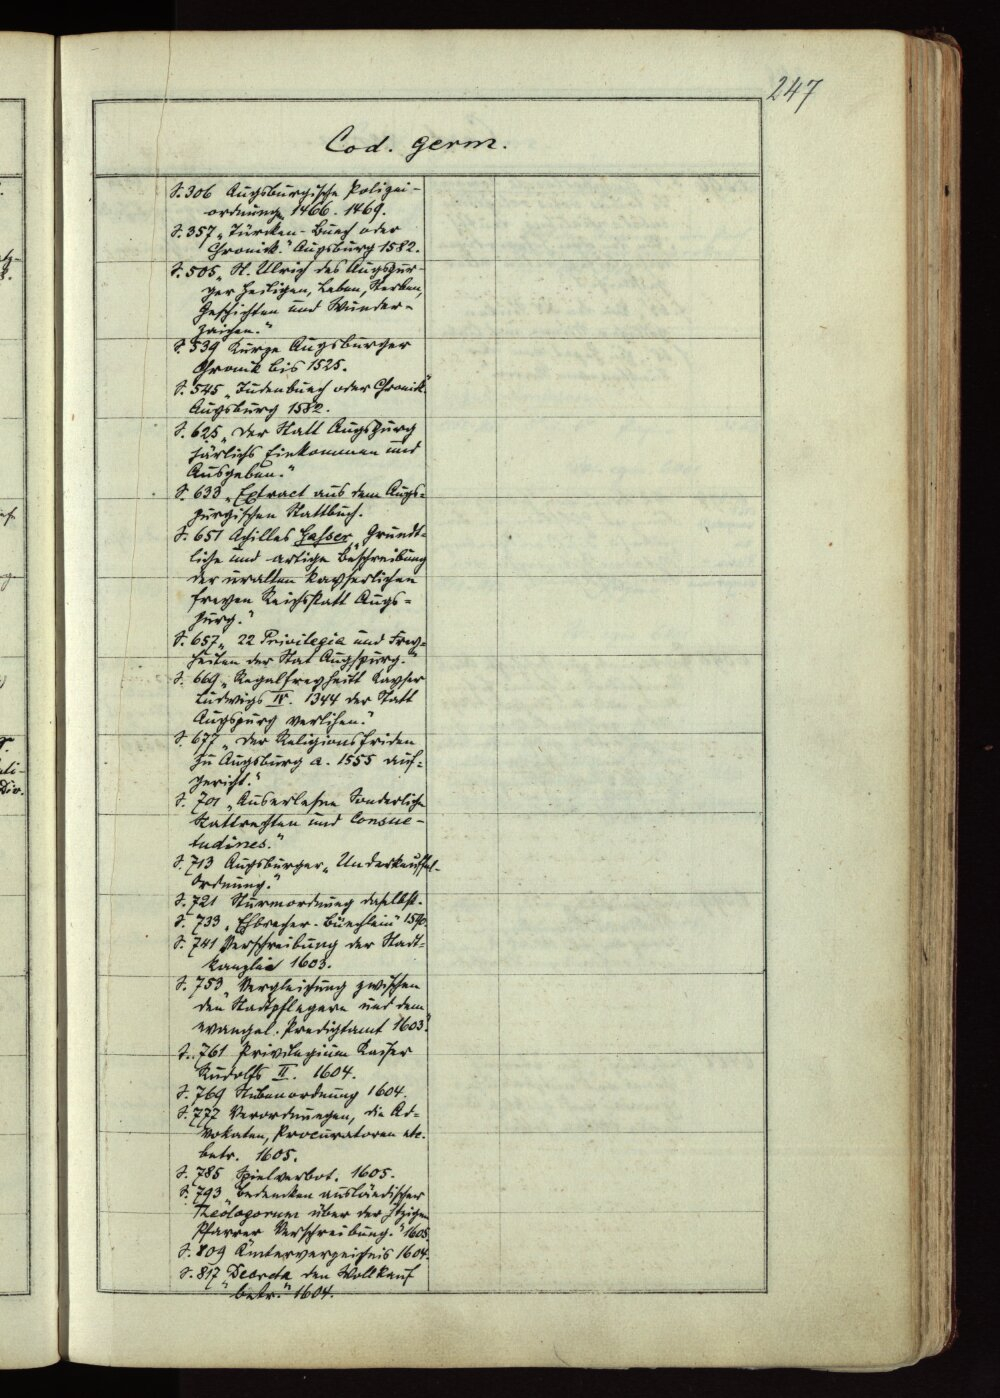 247
Cod. germ.
S. 306 Augsburgische Polizei-
ordnung 1466. 1469.
S. 357 „Türcken-Buech oder
Chronick." Augsburg 1582.
S. 505 „St. Ulrich des Augspur-
ger Heiligen, Leben, Sterben,
Geschichten und Wunder-
zaichen."
S. 539 Kurze Augsburger
Chronik bis 1525.
S. 545 „Judenbuech oder Chronick"
Augsburg 1582.
S. 625 „Der Statt Augspurg
järlichs Einkommen und
Ausgeben."
S. 633 „Extract aus dem Augs-
purgischen Stattbuch.
S. 651 Achilles Gasser „Grundt-
liche und artige Beschreibung
der uralten kayserlichen
freyen Reichsstatt Augs-
purg."
S. 657 „22 Privilegia und Frey-
heiten der Stat Augspurg."
S. 669 „Regalfreyheitt Kayser
Ludwigs IV. 1344 der Statt
Augspurg verlihen."
S. 677 „Der Religionsfriden
zu Augsburg a. 1555 auf-
gericht."
S. 701 „Auserlesne Sonderliche
Stattrechten und Consue-
tudines."
S. 713 Augsburger „Underkeuffel-
Ordnung."
S. 721 Sturmordnung daselbst.
S. 733 „Ehbrecher-Büechlein" 1590.
S. 741 Verschreibung der Stadt-
kanzlei 1603.
S. 753 „Vergleichung zwischen
den Stadtpflegern und dem
evangel. Predigtamt 1603."
S. 761 Privilegium Kaiser
Rudolfs II. 1604.
S. 769 Stubenordnung 1604.
S. 777 Verordnungen, die Ad-
vokaten, Procuratoren etc.
betr. 1605.
S. 785 Spielverbot. 1605.
S. 793 „Bedencken ausländischer
Theologorum über der jtzigen
Pfarrer Verschreibung." 1605.
S. 809 Ämterverzeichnis 1604.
S. 817 „Decreta den Wollkauf
betr." 1604.